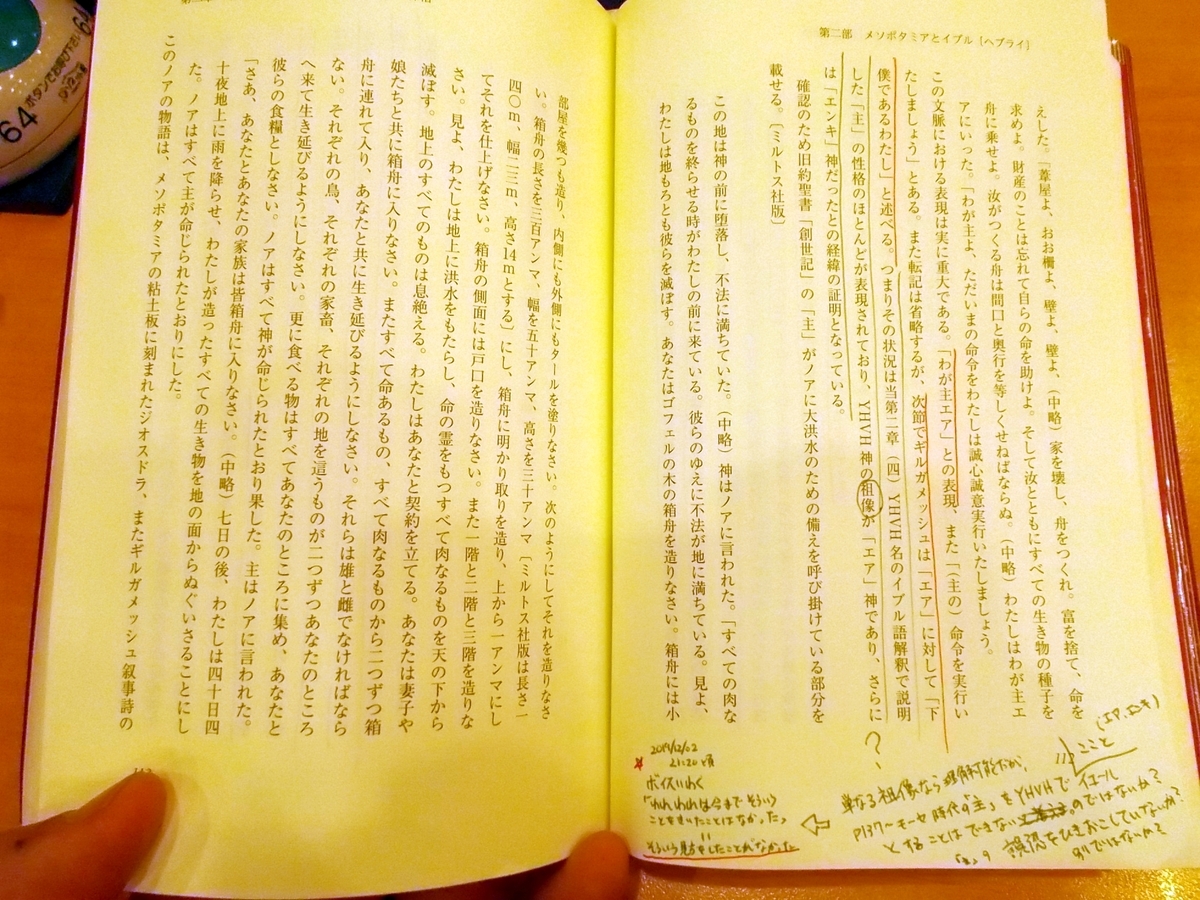 第二部 メソポタミアとイブル［ヘブライ］
えした。「葦屋よ、おお柵よ、壁よ、壁よ、（中略）家を壊し、舟をつくれ。富を捨て、命を
求めよ。財産のことは忘れて自らの命を助けよ。そして汝とともにすべての生き物の種子を
舟に乗せよ。汝がつくる舟は間口と奥行を等しくせねばならぬ。（中略）わたしはわが主エ
アにいった。「わが主よ、ただいまの命令をわたしは誠心誠意実行いたしましょう。
この文脈における表現は実に重大である。「わが主エア」との表現、また「（主の）命令を実行い
たしましょう」とある。また転記は省略するが、次節でギルガメッシュは「エア」に対して「下
僕であるわたし」と述べる。つまりその状況は当第二章（四）YHVH名のイブル語解釈で説明
した「主」の性格のほとんどが表現されており、YHVH神の祖像が「エア」神であり、さらに
は「エンキ」神だったとの経緯の証明となっている。
確認のため旧約聖書「創世記」の「主」がノアに大洪水のための備えを呼び掛けている部分を
載せる。［ミルトス社版］
この地は神の前に堕落し、不法に満ちていた。（中略）神はノアに言われた。「すべての肉な
るものを終らせる時がわたしの前に来ている。彼らのゆえに不法が地に満ちている。見よ、
わたしは地もろとも彼らを滅ぼす。あなたはゴフェルの木の箱舟を造りなさい。箱舟には小
？
（エア、エンキ）
こと
単なる祖像なら理解可能だが、
P137〜モーセ時代の「主」をYHVHで イコール
とすることはできない のではないか？
誤認をひきおこしていないか？
別ではないか？
2019/12/02
21:20頃
ボイスいわく
「われわれは今までそういう
ことをきいたことはなかった」
＝
そういう見方をしたことがなかった
部屋を幾つも造り、内側にも外側にもタールを塗りなさい。次のようにしてそれを造りなさ
い。箱舟の長さを三百アンマ、幅を五十アンマ、高さを三十アンマ［ミルトス社版は長さ一
四〇m、幅二三m、高さ14mとする］にし、箱舟に明かり取りを造り、上から一アンマにし
てそれを仕上げなさい。箱舟の側面には戸口を造りなさい。また一階と二階と三階を造りな
さい。見よ、わたしは地上に洪水をもたらし、命の霊をもつすべて肉なるものを天の下から
滅ぼす。地上のすべてのものは息絶える。わたしはあなたと契約を立てる。あなたは妻子や
娘たちと共に箱舟に入りなさい。またすべて命あるもの、すべて肉なるものから二つずつ箱
舟に連れて入り、あなたと共に生き延びるようにしなさい。それらは雄と雌でなければなら
ない。それぞれの鳥、それぞれの家畜、それぞれの地を這うものが二つずつあなたのところ
へ来て生き延びるようにしなさい。更に食べる物はすべてあなたのところに集め、あなたと
彼らの食糧としなさい。ノアはすべて神が命じられたとおり果した。主はノアに言われた。
「さあ、あなたとあなたの家族は皆箱舟に入りなさい。（中略）七日の後、わたしは四十日四
十夜地上に雨を降らせ、わたしが造ったすべての生き物を地の面からぬぐいさることにし
た。ノアはすべて主が命じられたとおりにした。
このノアの物語は、メソポタミアの粘土板に刻まれたジオスドラ、またギルガメッシュ叙事詩の
64
ボタンでお呼び下さい